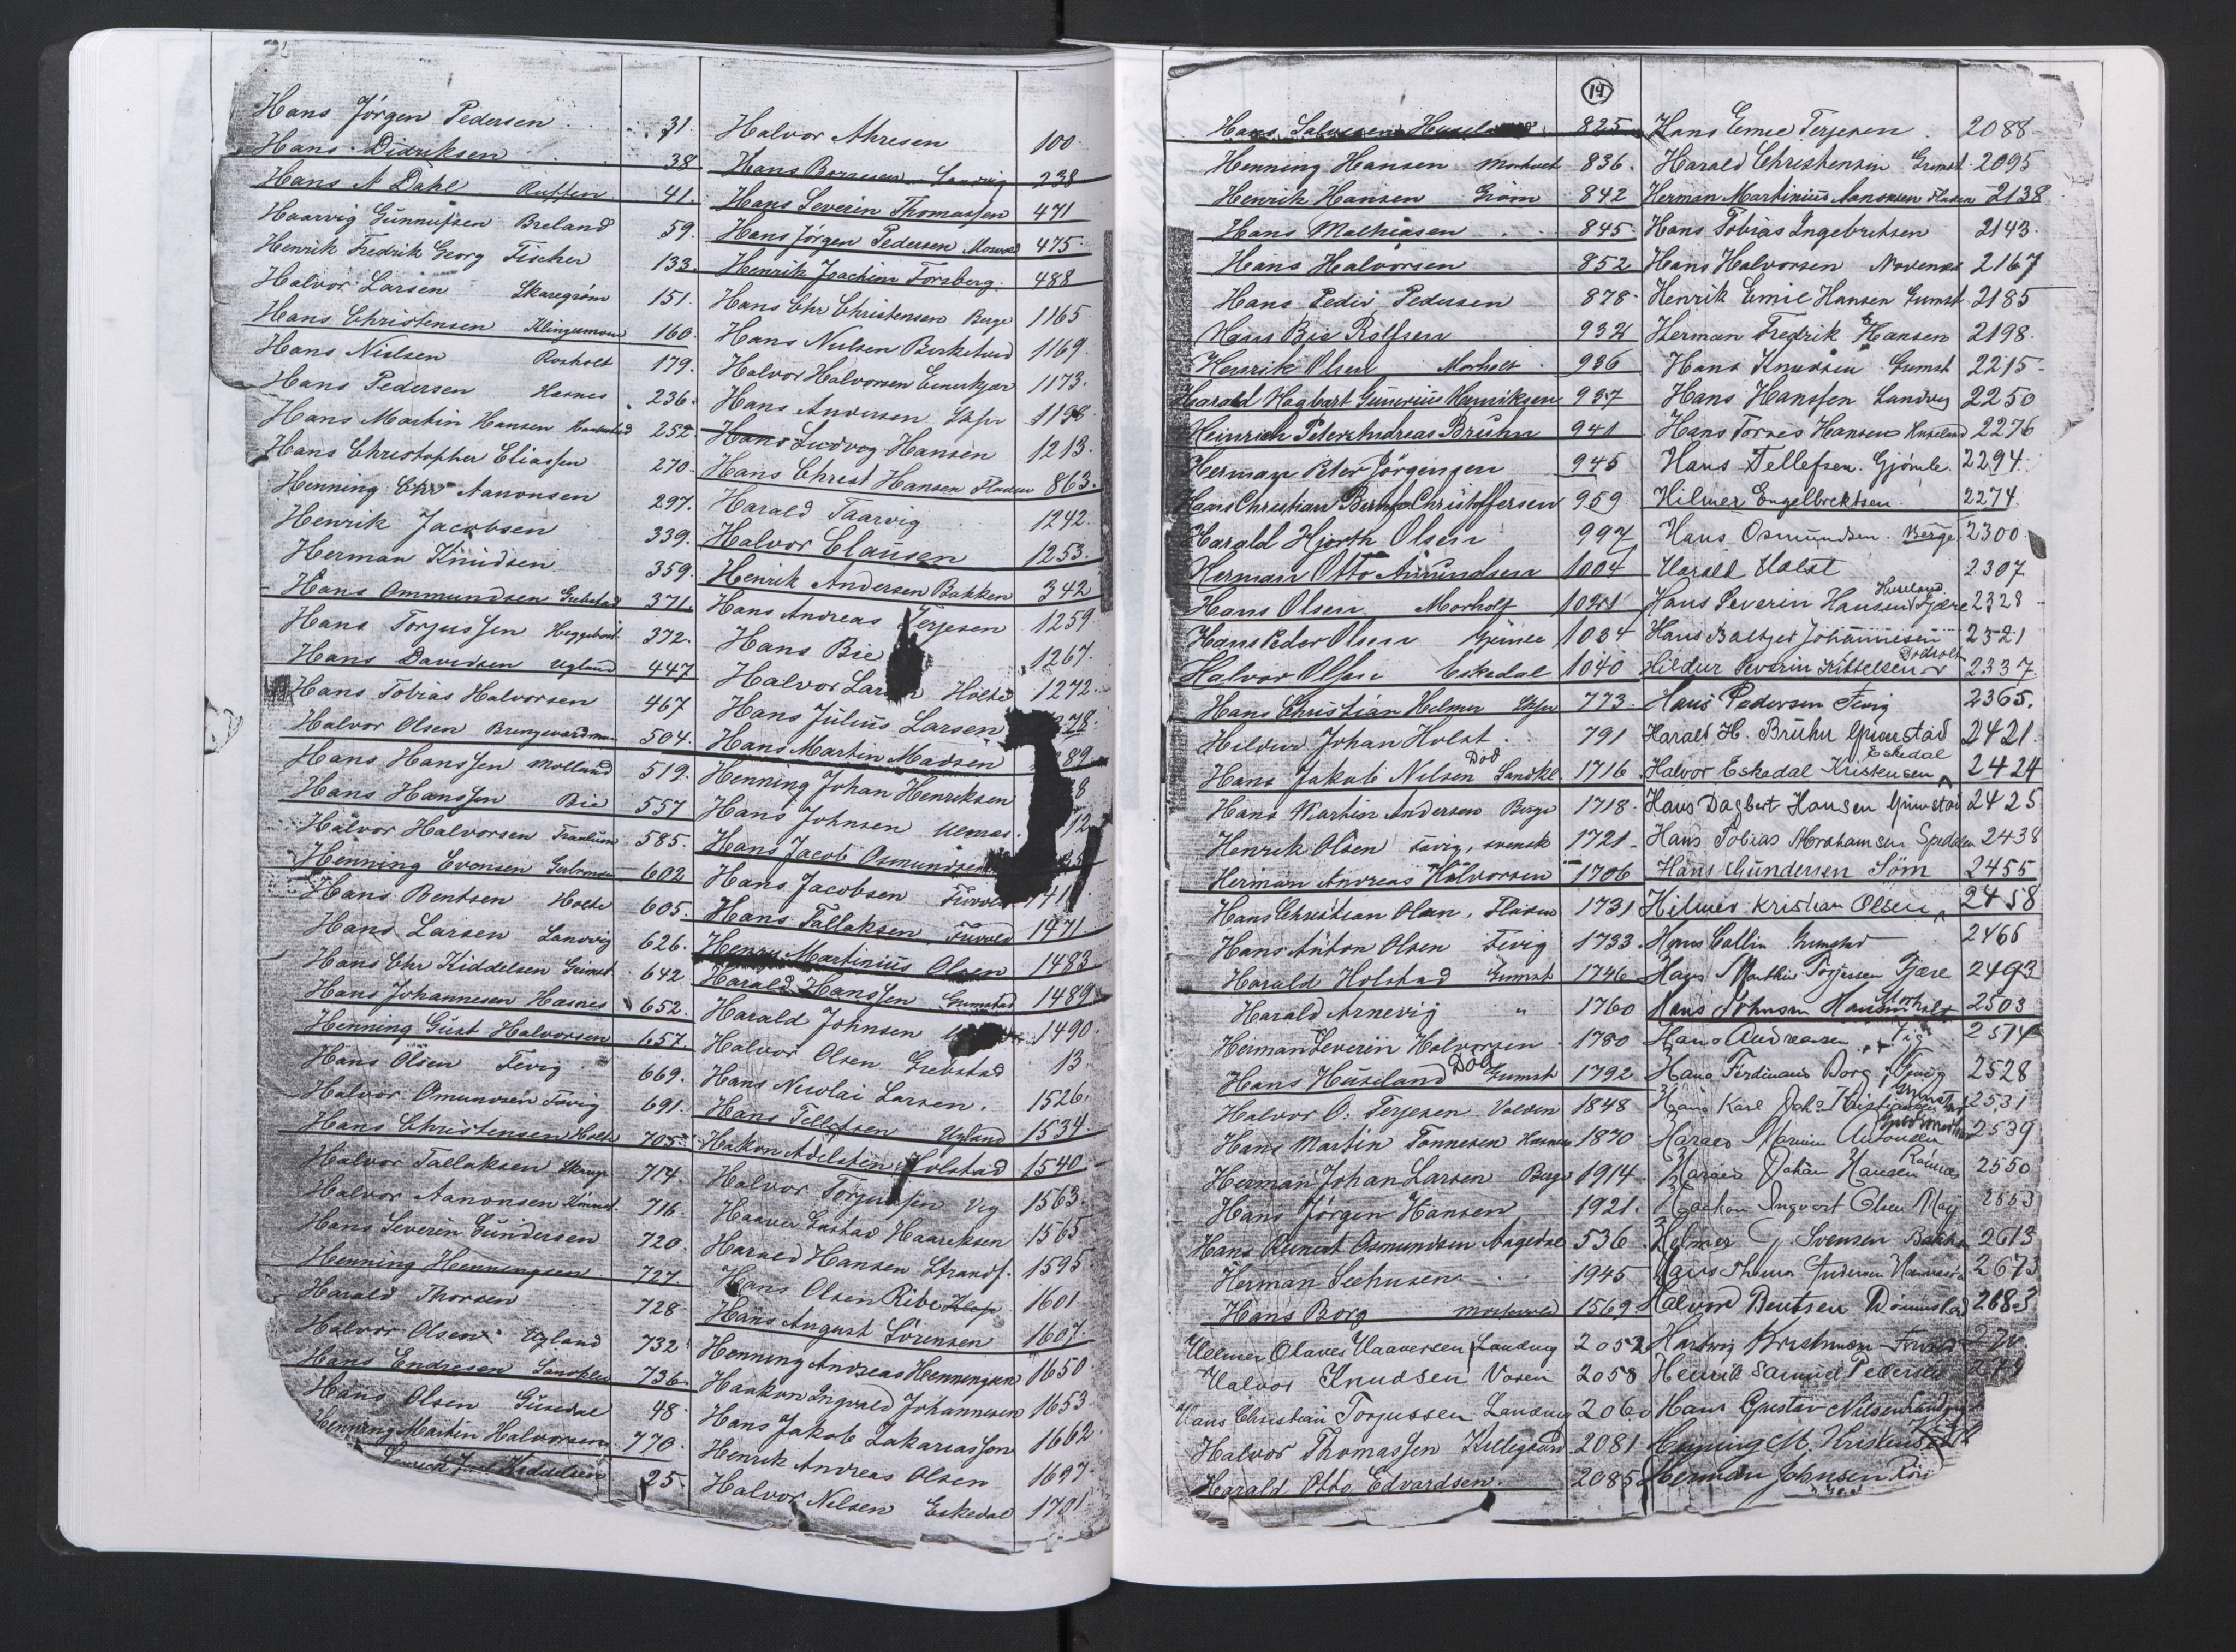 Hans Jörgen Pedersen 31.
Hans Didriksen 38
Hans A Dahl 41.
Haarvig Gunnufsen Breland 59.
Henrik Fredrik Georg Fischer 133.
Halvor Larsen Skaregrøm 151.
Hans Christensen 160.
Hans Nielsen Rosholt 179.
Hans Pedersen Hasnes 236.
Hans Martin Hansen 252.
Hans Christopher Eliassen 270.
Henning Chr Aanonsen 297.
Henrik Jacobsen 339.
Herman Knudsen 359.
Hans Ommundsen Grebstad 371.
Hans Torjussen 372.
Hans Davidsen Ugland 447
Hans Tobias Halvorsen 467
Halvor Olsen 504.
Hans Hanssen Molland 519.
Hans Hanssen Bie 557
Halvor Halvorsen 585.
Henning Evensen 602
Hans Bentsen Holte 605.
Hans Larsen Landvig 626.
Hans Chr Kiddelsen Grimst 642
Hans Johannesen Hasnes 652.
Henning Gust Halvorsen 657.
Hans Olsen Fevig 669.
Halvor Omundsen Fevig 691.
Hans Christensen Holte 705.
Halvor Tallaksen 714.
Halvor Aanonsen 716.
Hans Severin Gundersen 720.
Henning Henningsen 727.
Harald Thorsen 728
Halvor Olsen Ugland 732
Hans Endresen 736.
Hans Olsen 48
Henning Martin Halvorsen 770.
Kiddelsen 25
Halvor Ahresen 100.
Hans Landvig 238
Hans Severin Thomassen 471
Hans Jörgen Pedersen 475.
Henrik Joachim Forsberg 488
Hans Chr Christensen Berge 1165
Hans Nielsen Birketveid 1169.
Halvor Halvorsen 1173.
Hans Andersen 1198
Hans Ludvig Hansen 1213.
Hans Christ Hansen 863.
Harald Taarvig 1242.
Halvor Clausen 1253.
Henrik Andersen Bakken 342
Hans Andreas Terjesen 1259.
Hans Bie 1267.
Halvor Larsen Holte 1272.
Hans Julius Larsen 1278.
Hans Martin Madsen 89
Henning Johan Henriksen 8
Hans Johnsen 12
Hans Jacob Osmundsen
Hans Jacobsen
Hans Tallaksen 1471.
Henry Martinius Olsen 1483
Harald Hanssen Grimstad 1489
Harald Johnsen 1490.
Halvor Olsen Grebstad 13.
Hans Nicolai Larsen. 1526.
Hans Tellefsen Ugland 1534.
Hakon Adelsten Holstad 1540
Halvor Torjussen Vig 1563.
Haaver Gustav Haariksen 1565
Harald Hansen Strandf. 1595
Hans Olsen Ribe 1601
Hans August Sörensen 1607
Henning Andreas Henningsen 1650.
Haakon Ingvald Johannesen 1653
Hans Jakob Zakariasson 1662.
Henrik Andreas Olsen 1697.
Halvor Nelsen Eskedal 1701
14
Hans 825
Henning Hansen Morholt 836.
Henrik Hansen Grøm 842
Hans Mathiasen 845.
Hans Halvorsen 852
Hans Peder Pedersen 878
Hans Bie Rolfsen 932
Henrik Olsen Morholt 936
Harald Hagbart Gunerius Henriksen 937
Heinrich Peter Andreas Bruhn 941
Herman Peter Jörgensen 945
Hans Christian Christoffersen 959
Harald Hjorth Olsen 997
Herman Otto Amundsen 1004
Hans Olsen Morholt
Hans Peder Olsen 1034
Halvor Olsen Eskedal 1040
Hans Christian Helmer 773.
Hildur Johan Holst 791
Hans Jakob Nilsen Død 1716
Hans Martin Andersen Berge 1718.
Henrik Olsen Fevig, svensk 1721
Herman Andreas Halvorsen 1706
Hans Christian Olsen, 1731
Hans Anton Olsen Fevig 1733.
Harald Holstad Grimst 1746
Harald Arnevig " 1760
Herman Severin Halvorsen 1780
Hans Huseland Død Grimst 1792
Halvor O. Terjesen 1848
Hans Martin Tønnesen Hasnes 1870
Herman Johan Larsen Berge 1914.
Hans Jörgen Hansen 1921.
Hans Reinert Osmundsen Aagedal 536
Herman Seehusen 1945
Hans Borg 1569
Helmer Olaves Haaversen Landvig 2053
Halvor Knudsen 2058
Hans Christian Torjussen Landvig 2060
Halvor Thomassen Killegaard 2081
Harald Otto Edvardsen. 2085
Hans Emil Terjesen 2088
Harald Christensen Grimst. 2095
Herman Martinius Aanonsen 2138
Hans Tobias Ingebretsen 2143.
Hans Halvorsen 2167
Henrik Emil Hansen Grimst. 2185
Herman Fredrik Hansen 2198.
Hans Knudsen Grimst 2215
Hans Hanssen Landvig 2250
Hans Hansen Huseland 2276
Hans Tellefsen. Gjømle. 2294.
Hilmer Engelbrektsen. 2274.
Hans Osmundsen. Berge 2300
Harald Holst 2307
Hans Severin Hansen Huseland Fjære 2328
Hans Johannesen 2321
Hildur Severin Kittelsen 2337
Hans Pedersen Fevig 2365.
Harald H. Bruhn Grimstad 2421.
Halvor Eskedal Kristensen Eskedal 2424
Hans Dagbert Hansen Grimstad 2425
Hans Tobias Abrahamsen 2438
Hans Gundersen Søm 2455
Hilmer Kristian Olsen 2458
Hans Callin Grimstad 2466
Hans Mathias Torjussen Fjære 2493
Hans Johnsen Morholt 2503
Hans Andreasen 2514
Hans Ferdinand Borg, Fevig 2528
Hans Karl Joh. Kristiansen 2531
Harald Marius 2539
Harald Johan Hansen 2550
Haakon Ingvart Olsen 2553
Helmer G. Svensen Bakken 2613
Hans Andersen 2673
Halvord Bentsen 2683
Hartvig
Henrik Samuel Pedersen
Hans Gustav Nilsen Landvig
Henning M. Kristensen
Herman Johnsen